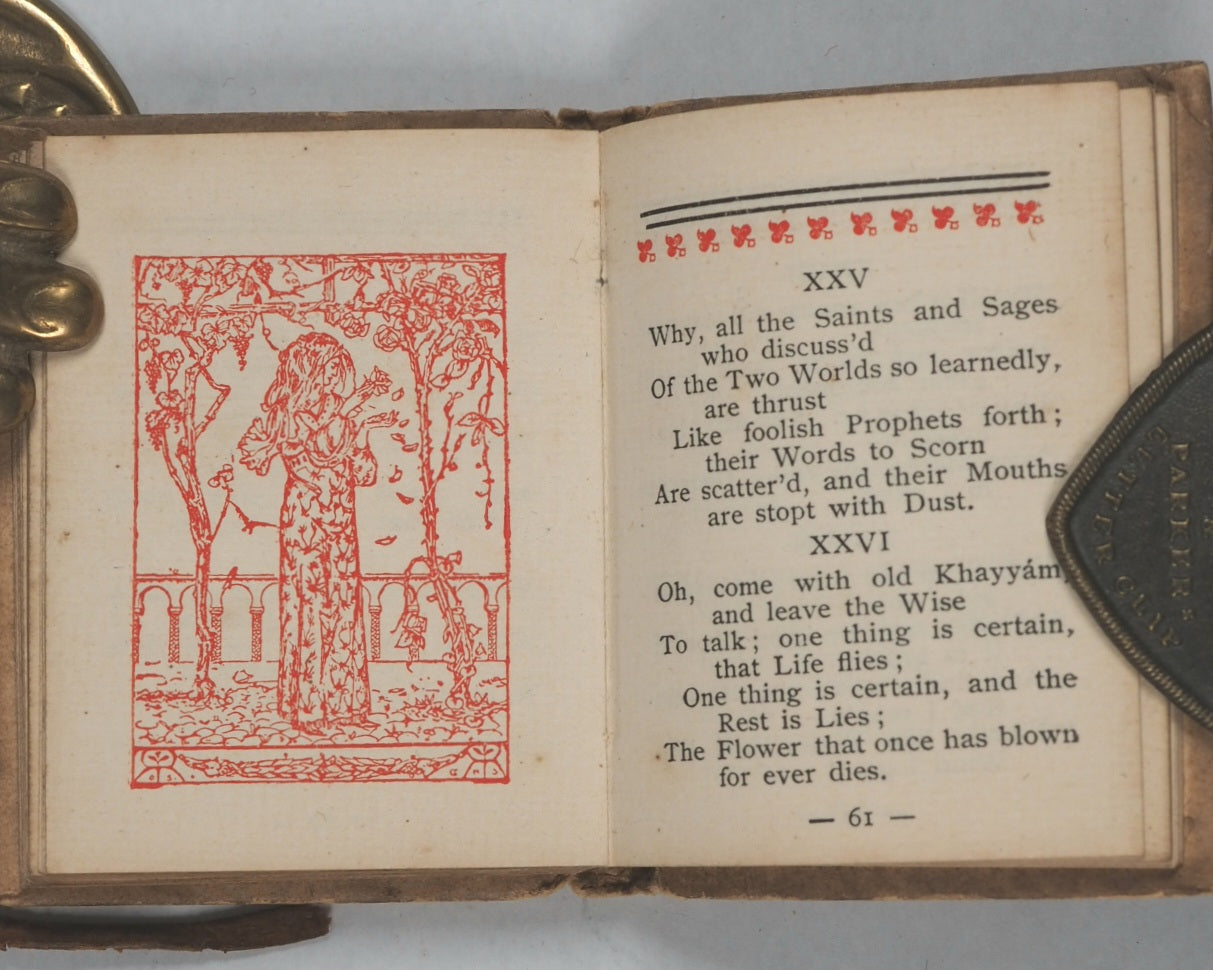 XXV
Why, all the Saints and Sages
who discuss'd
Of the Two Worlds so learnedly,
are thrust
Like foolish Prophets forth ;
their Words to Scorn
Are scatter'd, and their Mouths
are stopt with Dust.
XXVI
Oh, come with old Khayyám,
and leave the Wise
To talk ; one thing is certain,
that Life flies ;
One thing is certain, and the
Rest is Lies ;
The Flower that once has blown
for ever dies.
— 61 —
PARKKER'S